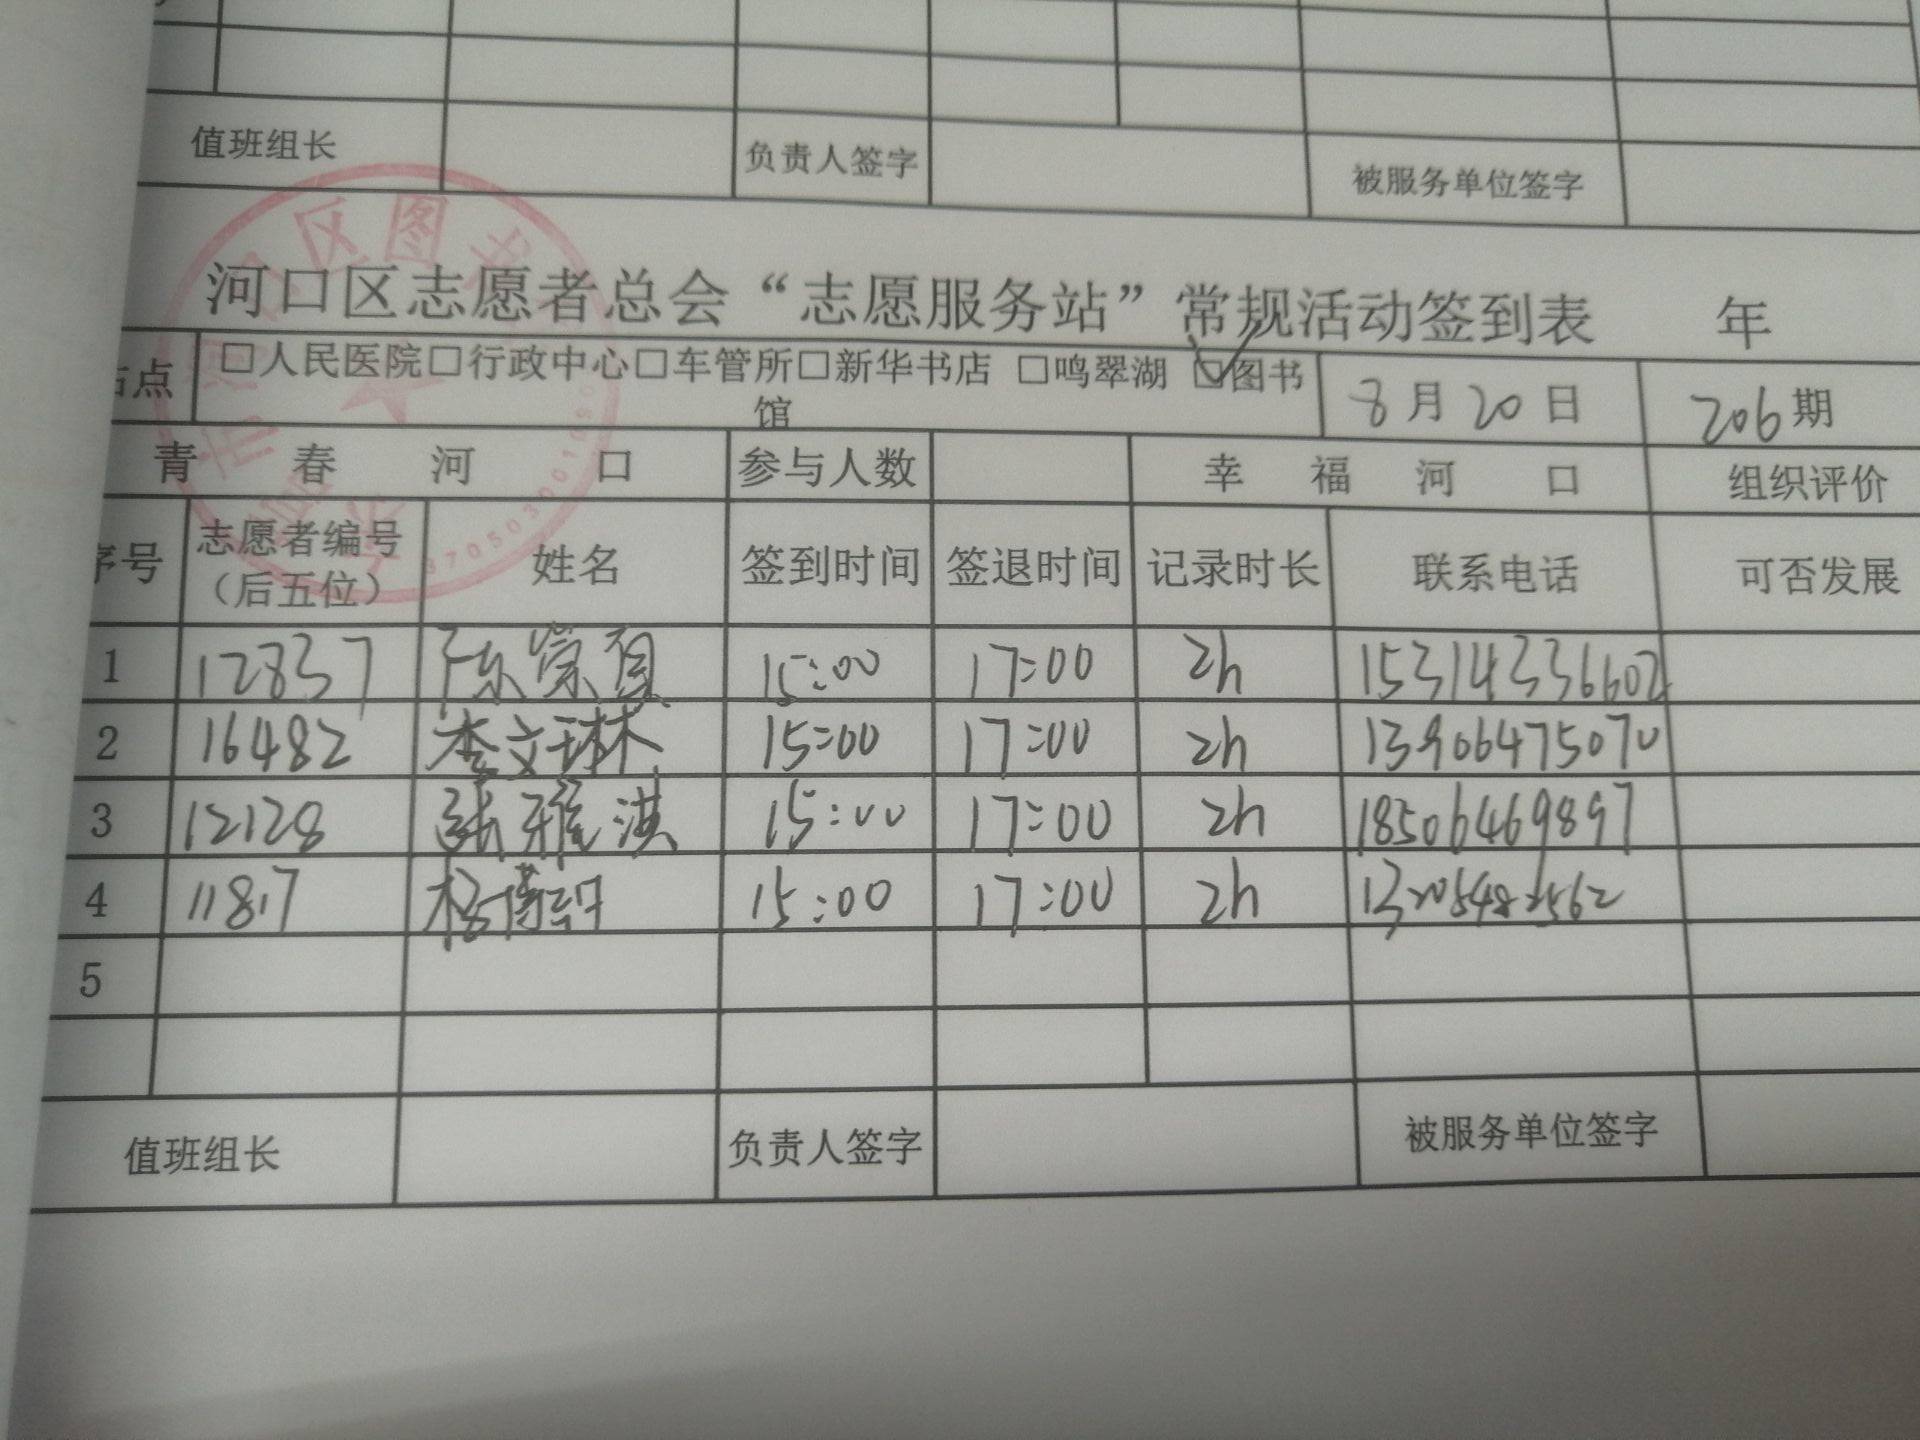 值班组长 负责人签字 被服务单位签字
河口区志愿者总会“志愿服务站”常规活动签到表 年
点 □人民医院□行政中心□车管所□新华书店 □鸣翠湖 ☑图书馆 8月20日 206期
青春河口 参与人数 幸福河口 组织评价
序号 志愿者编号（后五位） 姓名 签到时间 签退时间 记录时长 联系电话 可否发展
1 12837 15:00 17:00 2h 15314336602
2 16482 李文琳 15:00 17:00 2h 13906475070
3 12128 张雅淇 15:00 17:00 2h 18506469897
4 11817 杨博 15:00 17:00 2h
5
值班组长 负责人签字 被服务单位签字